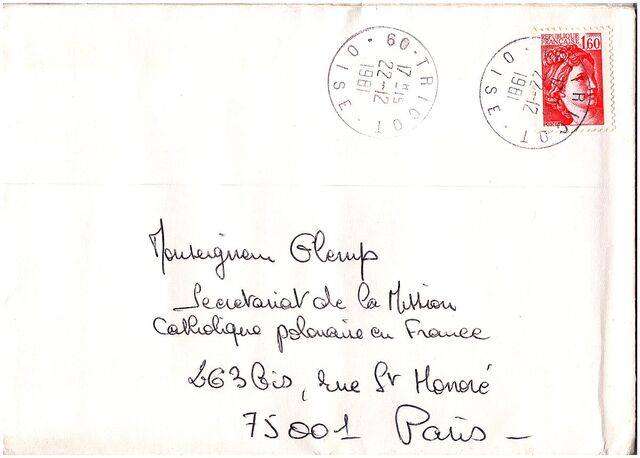 60-TRICOT
17H-15
22-12
1981
OISE
RÉPUBLIQUE
FRANÇAISE
1,60
TRICOT
22-12
1981
OISE
Monseigneur Glemp
Secretariat de la Mission
Catholique polonaise en France
263 bis, rue St Honoré
75001 Paris –